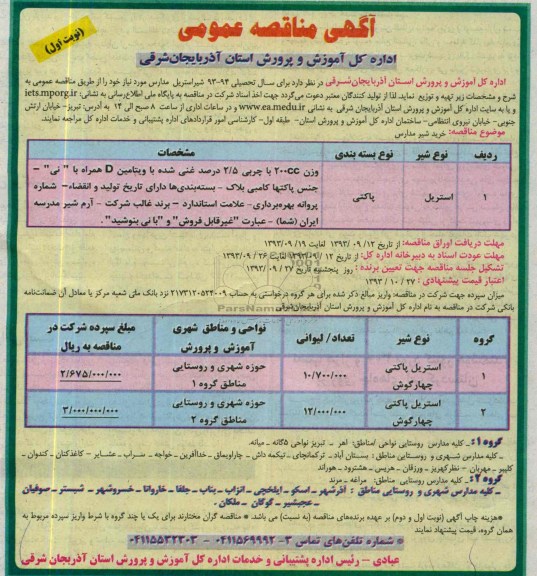 آگهی مناقصه عمومی
(نوبت اول)
اداره کل آموزش و پرورش استان آذربایجان‌شرقی
اداره کل آموزش و پرورش استان آذربایجان‌شرقی در نظر دارد برای سال تحصیلی ۹۴-۹۳ شیر استریل مدارس مورد نیاز خود را از طریق مناقصه عمومی به
شرح و مشخصات زیر تهیه و توزیع نماید. لذا از تولید کنندگان معتبر دعوت می‌گردد جهت اخذ اسناد شرکت در مناقصه به پایگاه ملی اطلاع‌رسانی به نشانی: iets.mporg.ir
و یا به سایت اداره کل آموزش و پرورش استان آذربایجان شرقی به نشانی www.ea.medu.ir و در ساعات اداری از ساعت ۸ صبح الی ۱۴ به آدرس: تبریز- خیابان ارتش
جنوبی- خیابان نیروی انتظامی- ساختمان اداره کل آموزش و پرورش استان- طبقه اول- کارشناسی امور قراردادهای اداره پشتیبانی و خدمات اداره کل مراجعه نمایند.
موضوع مناقصه: خرید شیر مدارس
ردیف نوع شیر نوع بسته بندی مشخصات
۱ استریل پاکتی وزن ۲۰۰cc با چربی ۲/۵ درصد غنی شده با ویتامین D همراه با " نی" -
جنس پاکتها کامبی بلاک - بسته‌بندی‌ها دارای تاریخ تولید و انقضاء- شماره
پروانه بهره‌برداری- علامت استاندارد - برند غالب شرکت - آرم شیر مدرسه
ایران (شما) - عبارت "غیرقابل فروش" و "با نی بنوشید".
مهلت دریافت اوراق مناقصه: از تاریخ ۱۲/ ۰۹/ ۱۳۹۳ لغایت ۱۹/ ۱۳۹۳/۰۹
مهلت عودت اسناد به دبیرخانه اداره کل: از تاریخ ۱۲/ ۱۳۹۳/۰۹ لغایت ۲۶ /۱۳۹۳/۰۹
تشکیل جلسه مناقصه جهت تعیین برنده : روز پنجشنبه تاریخ ۲۷ / ۰۹/ ۱۳۹۳
اعتبار قیمت پیشنهادی : ۲۷ / ۱۰ / ۱۳۹۳
میزان سپرده جهت شرکت در مناقصه: واریز مبالغ ذکر شده برای هر گروه درخواستی به حساب ۲۱۷۳۱۲۰۵۲۴۰۰۹ نزد بانک ملی شعبه مرکز یا معادل آن ضمانت‌نامه
بانکی شرکت در مناقصه به نام اداره کل آموزش و پرورش استان آذربایجان‌شرقی
گروه نوع شیر تعداد/ لیوانی نواحی و مناطق شهری آموزش و پرورش مبلغ سپرده شرکت در مناقصه به ریال
۱ استریل پاکتی چهارگوش ۱۰/۷۰۰/۰۰۰ حوزه شهری و روستایی مناطق گروه ۱ ۲/۶۷۵/۰۰۰/۰۰۰
۲ استریل پاکتی چهارگوش ۱۲/۰۰۰/۰۰۰ حوزه شهری و روستایی مناطق گروه ۲ ۳/۰۰۰/۰۰۰/۰۰۰
گروه ۱: ـ کلیه مدارس روستایی نواحی /مناطق: اهر ـ تبریز نواحی ۵گانه ـ میانه.
ـ کلیه مدارس شهری و روستایی مناطق : بستان آباد ـ ترکمانچای ـ تیکمه داش ـ چاراویماق ـ خداآفرین ـ خواجه ـ سراب ـ عشایر ـ کاغذکنان ـ کندوان ـ
کلیبر ـ مهربان ـ نظرکهریز ـ ورزقان ـ هریس ـ هشترود ـ هوراند
گروه ۲: ـ کلیه مدارس روستایی مناطق: مراغه ـ مرند
ـ کلیه مدارس شهری و روستایی مناطق : آذرشهر ـ اسکو ـ ایلخچی ـ انزاب ـ بناب ـ جلفا ـ خاروانا ـ خسروشهر ـ شبستر ـ صوفیان
ـ عجبشیر ـ گوگان ـ ملکان .
*هزینه چاپ آگهی (نوبت اول و دوم) بر عهده برنده‌های مناقصه (به نسبت) می باشد. * مناقصه گران مختارند برای یک یا چند گروه با شرط واریز سپرده مربوط به
همان گروه، قیمت پیشنهاد نمایند
* شماره تلفن‌های تماس ۳- ۰۴۱۱۵۶۹۹۹۲ - ۰۴۱۱۵۵۳۲۳۰۳
عبادی - رئیس اداره پشتیبانی و خدمات اداره کل آموزش و پرورش استان آذربایجان شرقی